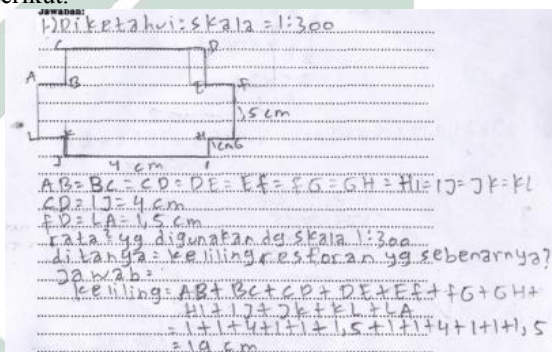 erikut.
Jawaban:
1) Diketahui: skala = 1:300
C D
A B E F
1,5 cm
L K H 1cm G
J 4 cm I
AB = BC = CD = DE = EF = FG = GH = HI = IJ = JK = KL
CD = IJ = 4 cm
FD = LA = 1,5 cm
rata² yg digunakan dg skala 1:300
ditanya = keliling restoran yg sebenarnya?
Jawab:
keliling = AB + BC + CD + DE + EF + FG + GH +
HI + IJ + JK + KL + LA
= 1+1+4+1+1+1,5+1+1+4+1+1+1,5
= 19 cm